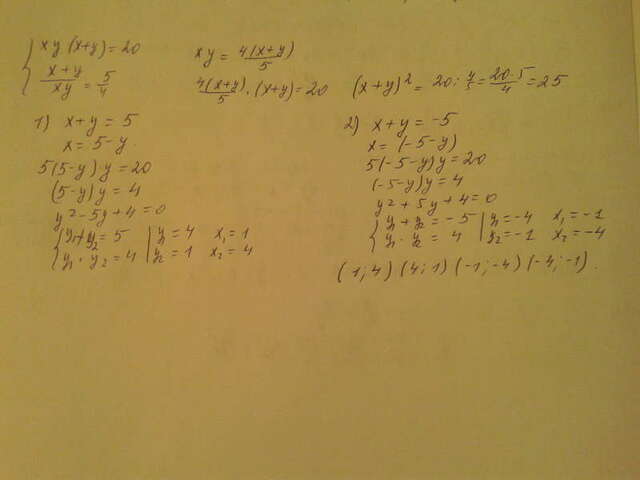 { xy(x+y)=20
x+y/xy = 5/4
xy = 4(x+y)/5
4(x+y)/5 · (x+y)=20
(x+y)² = 20 : 4/5 = 20·5/4 = 25
1) x+y = 5
x = 5-y.
5(5-y)·y = 20
(5-y)y = 4
y²-5y+4=0
{ y₁+y₂ = 5 | y₁ = 4 x₁ = 1
y₁·y₂ = 4 | y₂ = 1 x₂ = 4
2) x+y = -5
x = (-5-y)
5(-5-y)y = 20
(-5-y)y = 4
y²+5y+4=0
{ y₁+y₂ = -5 | y₁=-4 x₁ = -1
y₁·y₂ = 4 | y₂=-1 x₂ = -4
(1;4) (4;1) (-1;-4) (-4;-1).